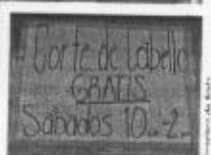 Corte de Cabello
GRATIS
Sabados 10..-2..